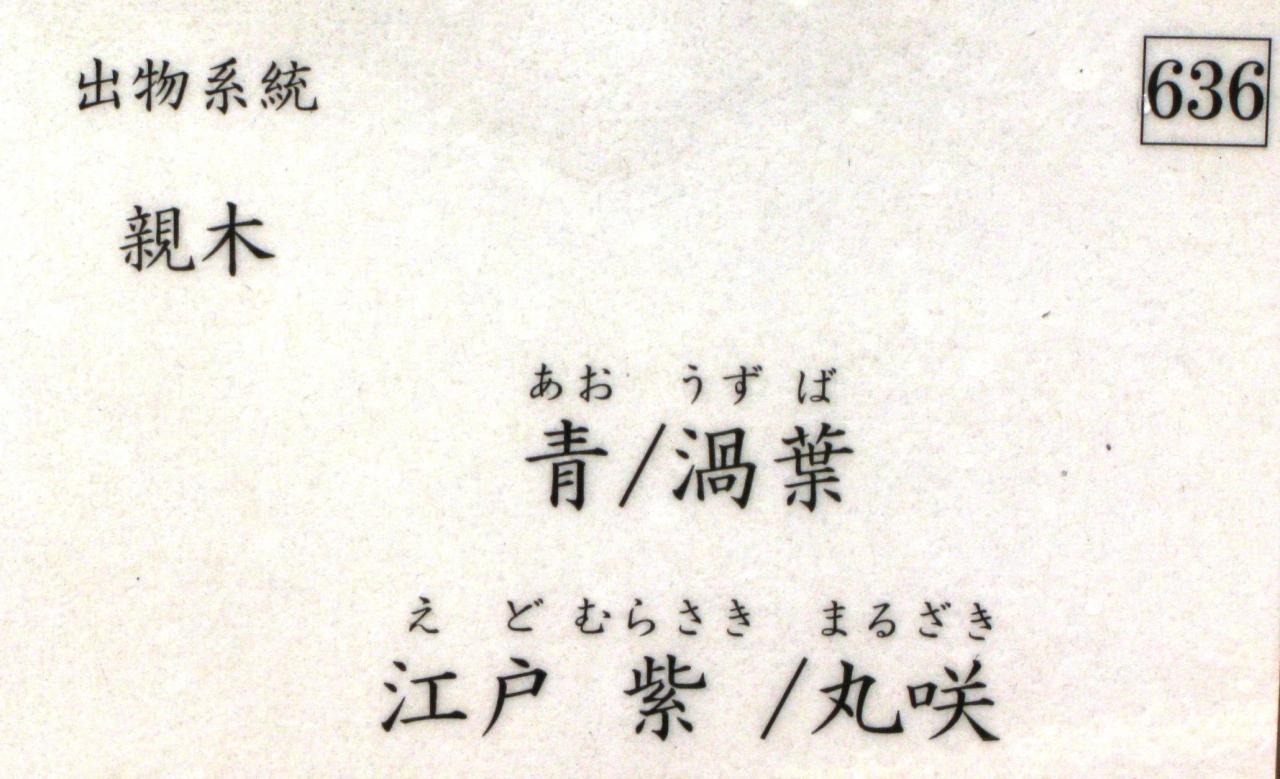 出物系統
636
親木
あお うずば
青/渦葉
えどむらさき まるざき
江戸 紫 /丸咲